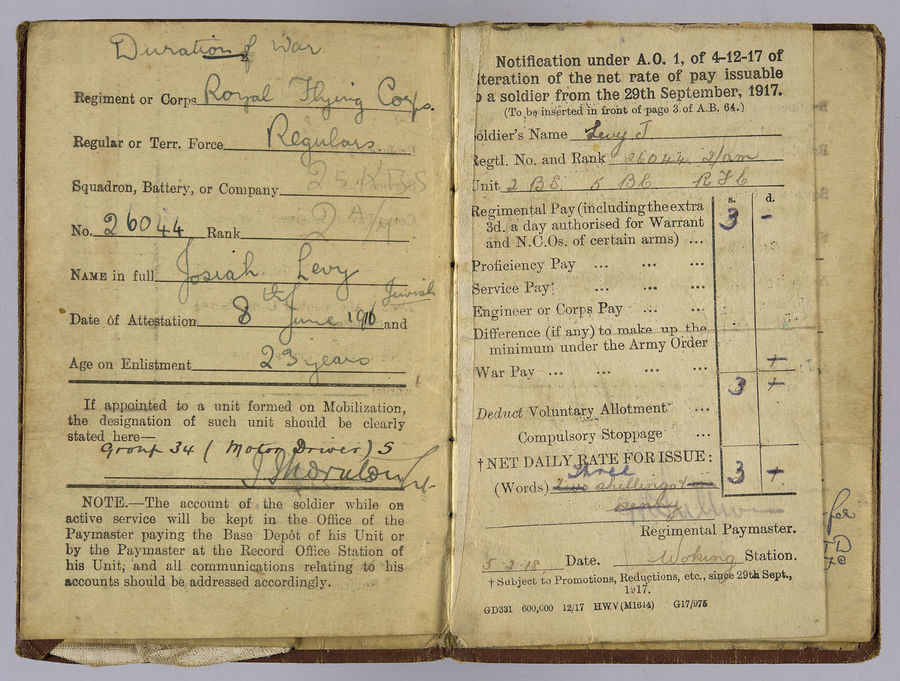 Duration of War
Regiment or Corps Royal Flying Corps.
Regular or Terr. Force Regulars
Squadron, Battery, or Company 25 K B S
No. 26044 Rank 2 A/M
NAME in full Josiah Levy
Jewish
Date of Attestation 8th June 1916 and
Age on Enlistment 23 years
If appointed to a unit formed on Mobilization,
the designation of such unit should be clearly
stated here—
Group 34 (Motor Driver) S
NOTE.—The account of the soldier while on
active service will be kept in the Office of the
Paymaster paying the Base Depôt of his Unit or
by the Paymaster at the Record Office Station of
his Unit; and all communications relating to his
accounts should be addressed accordingly.
Notification under A.O. 1, of 4-12-17 of
lteration of the net rate of pay issuable
o a soldier from the 29th September, 1917.
(To be inserted in front of page 3 of A.B. 64.)
oldier's Name Levy J
Regtl. No. and Rank 26044 2/am
Unit 2 BS. 5 BC R F C
s. d.
Regimental Pay (including the extra 3 -
3d. a day authorised for Warrant
and N.C.Os. of certain arms) ...
Proficiency Pay ... ... ...
Service Pay ... ... ...
Engineer or Corps Pay ... ...
Difference (if any) to make up the
minimum under the Army Order
War Pay ... ... ... ... +
3 +
Deduct Voluntary Allotment ...
Compulsory Stoppage ...
† NET DAILY RATE FOR ISSUE: 3 +
Three
(Words) two shillings + —
Regimental Paymaster.
5-2-18 Date. Woking Station.
† Subject to Promotions, Reductions, etc., since 29th Sept.,
1917.
GD331 600,000 12/17 HWV(M1614) G17/975